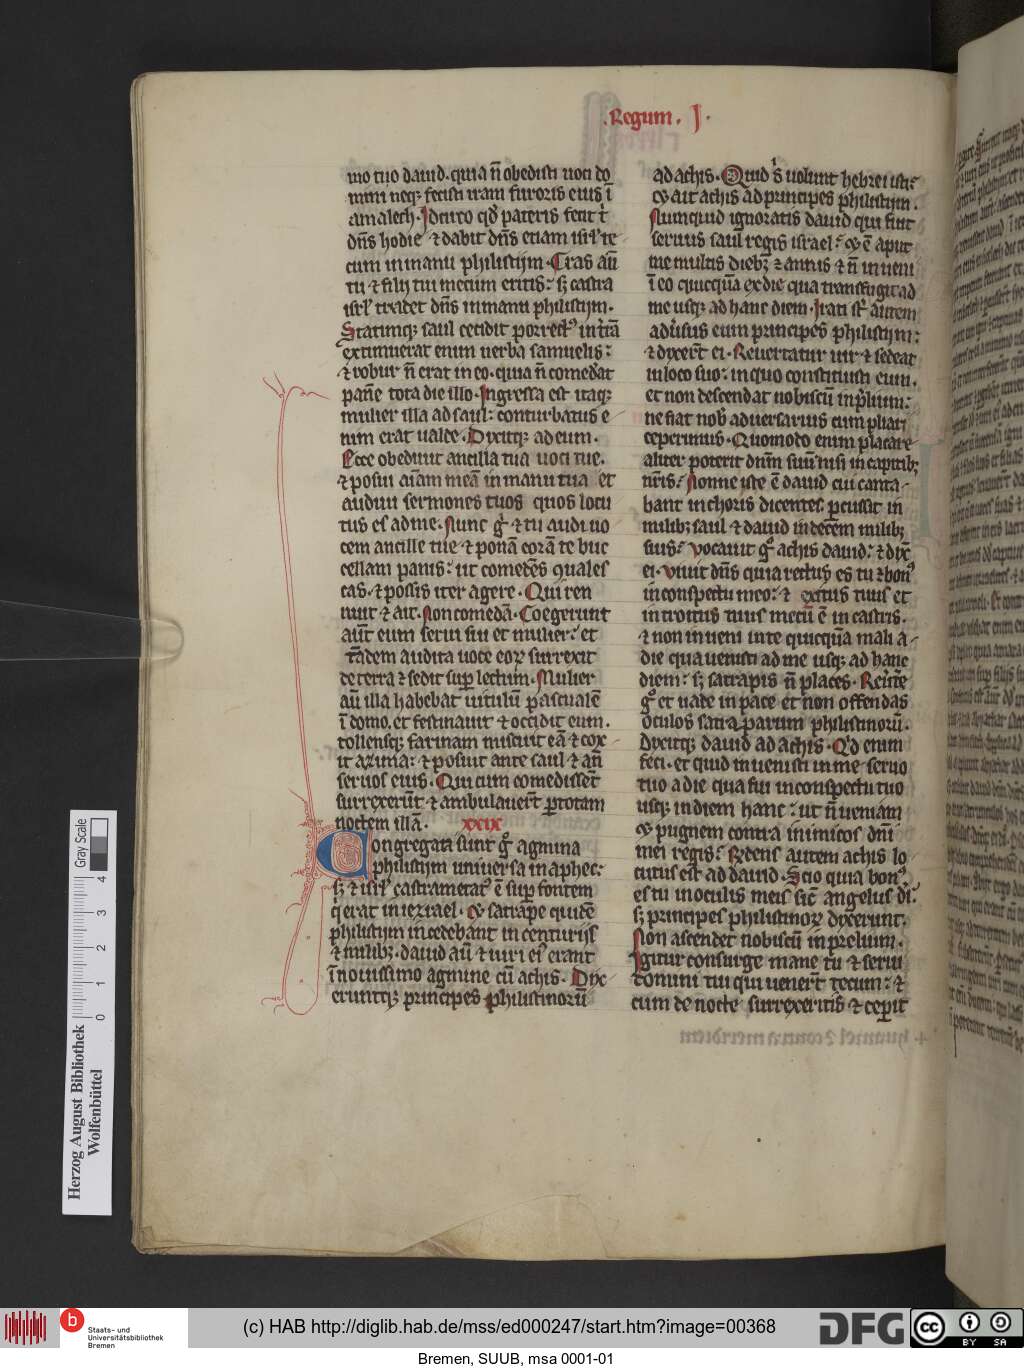 .Regum. I.
mo tuo dauid. quia n̄ obedisti uoci do
mini neqꝫ fecisti iram furoris eius ī
amalech. Idcirco qd̓ pateris fecit t̄
dn̄s hodie ⁊ dabit dn̄s etiam isrl̓ te
cum in manu philistijm. Cras aū
tu ⁊ filij tui mecum eritis: sꝫ castra
isrl̓ tradet dn̄s in manu philistijm.
Statimqꝫ saul cecidit porrectꝰ in t̓rā
extimuerat enim uerba samuelis:
⁊ robur n̄ erat in eo. quia n̄ comedat
pane tota die illo. Ingressa est itaqꝫ
mulier illa ad saul: conturbatus e
nim erat ualde. Dixitqꝫ ad eum.
Ecce obediuit ancilla tua uoci tue.
⁊ posui aīam meā in manu tua et
audiui sermones tuos quos locu
tus es ad me. Nunc g̓ ⁊ tu audi uo
cem ancille tue ⁊ ponā corā te buc
cellam panis: ut comedēs ꝯuales
cas. ⁊ possis iter agere. Qui ren
nuit ⁊ ait. Non comedā. Coegerunt
aūt eum serui sui et mulier: et
tādem audita uoce eoꝝ surrexit
de terra ⁊ sedit sup̱ lectum. Mulier
aū illa habebat uitulū pascualē
ī domo. et festinauit ⁊ occidit eum.
tollensqꝫ farinam miscuit eā ⁊ cox
it azima: ⁊ posuit ante saul ⁊ an̄
seruos eius. Qui cum comedissēt
surrexerūt ⁊ ambulauer̄t ꝑ totam
noctem illā. xxix
Congregata sunt g̓ agmina
philistijm uniuersa in aphec:
sꝫ ⁊ isrl̓ castrametatꝰ ē sup̱ fontem
q̓ erat in iezrael. Et satrape quidē
philistijm incedebant in centurijs
⁊ milibꝫ. dauid aū ⁊ uiri eiꝰ erant
ī nouissimo agmine cū achis. Dix
eruntqꝫ principes philistinorū
ad achis. Quid s̓ uolunt hebrei isti:
Et ait achis ad principes philistijm.
Numquid ignoratis dauid qui fuit
seruus saul regis israel: et ē aput
me multis diebꝫ ⁊ annis ⁊ n̄ inueni
ī eo quicquā ex die qua transfugit ad
me usqꝫ ad hanc diem. Irati sꝰ autem
aduersus eum principes philistijm:
⁊ dixer̄t ei. Reuertatur uir ⁊ sedeat
in loco suo: in quo constituisti eum.
et non descendat nobiscū in p̄lium:
ne fiat nob̓ aduersarius cum pliari
ceperimus. Quomodo enim placare
aliter poterit dnm̄ suū nisi in capitibꝫ
nr̄is: Nonne iste ē dauid cui canta
bant in choris dicentes: ꝑcussit in
milibꝫ saul ⁊ dauid in decem milibꝫ
suis: Vocauit gͦ achis dauid: ⁊ dix̄
ei. Viuit dn̄s quia rectus es tu ⁊ bonꝰ
in conspectu meo: ⁊ exitus tuus et
introitus tuus mecū ē in castris.
⁊ non inueni in te quicquā mali a
die qua uenisti ad me usqꝫ ad hanc
diem: sꝫ satrapis n̄ places. Reūt̄e
gͦ et uade in pace et non offendas
oculos satraparum philistinorū.
Dixitqꝫ dauid ad achis. Qͥd enim
feci. et quid inuenisti in me seruo
tuo a die qua fui in conspectu tuo
usqꝫ in diem hanc: ut n̄ ueniam
et pugnem contra inimicos dn̄i
mei regis: Rn̄dens autem achis lo
cutus est ad dauid. Scio quia bonꝰ
es tu in oculis meis sic̄ angelus dī.
sꝫ principes philistinoꝝ dixerunt.
Non ascendet nobiscū in prelium.
Igitur consurge mane tu ⁊ serui
domini tui qui uener̄t tecum: ⁊
cum de nocte surrexeritis ⁊ ceperit
Herzog August Bibliothek
Wolfenbüttel
Gray Scale
0 1 2 3 4
b
Staats- und
Universitätsbibliothek
Bremen
(c) HAB http://diglib.hab.de/mss/ed000247/start.htm?image=00368
DFG
cc
BY SA
Bremen, SUUB, msa 0001-01